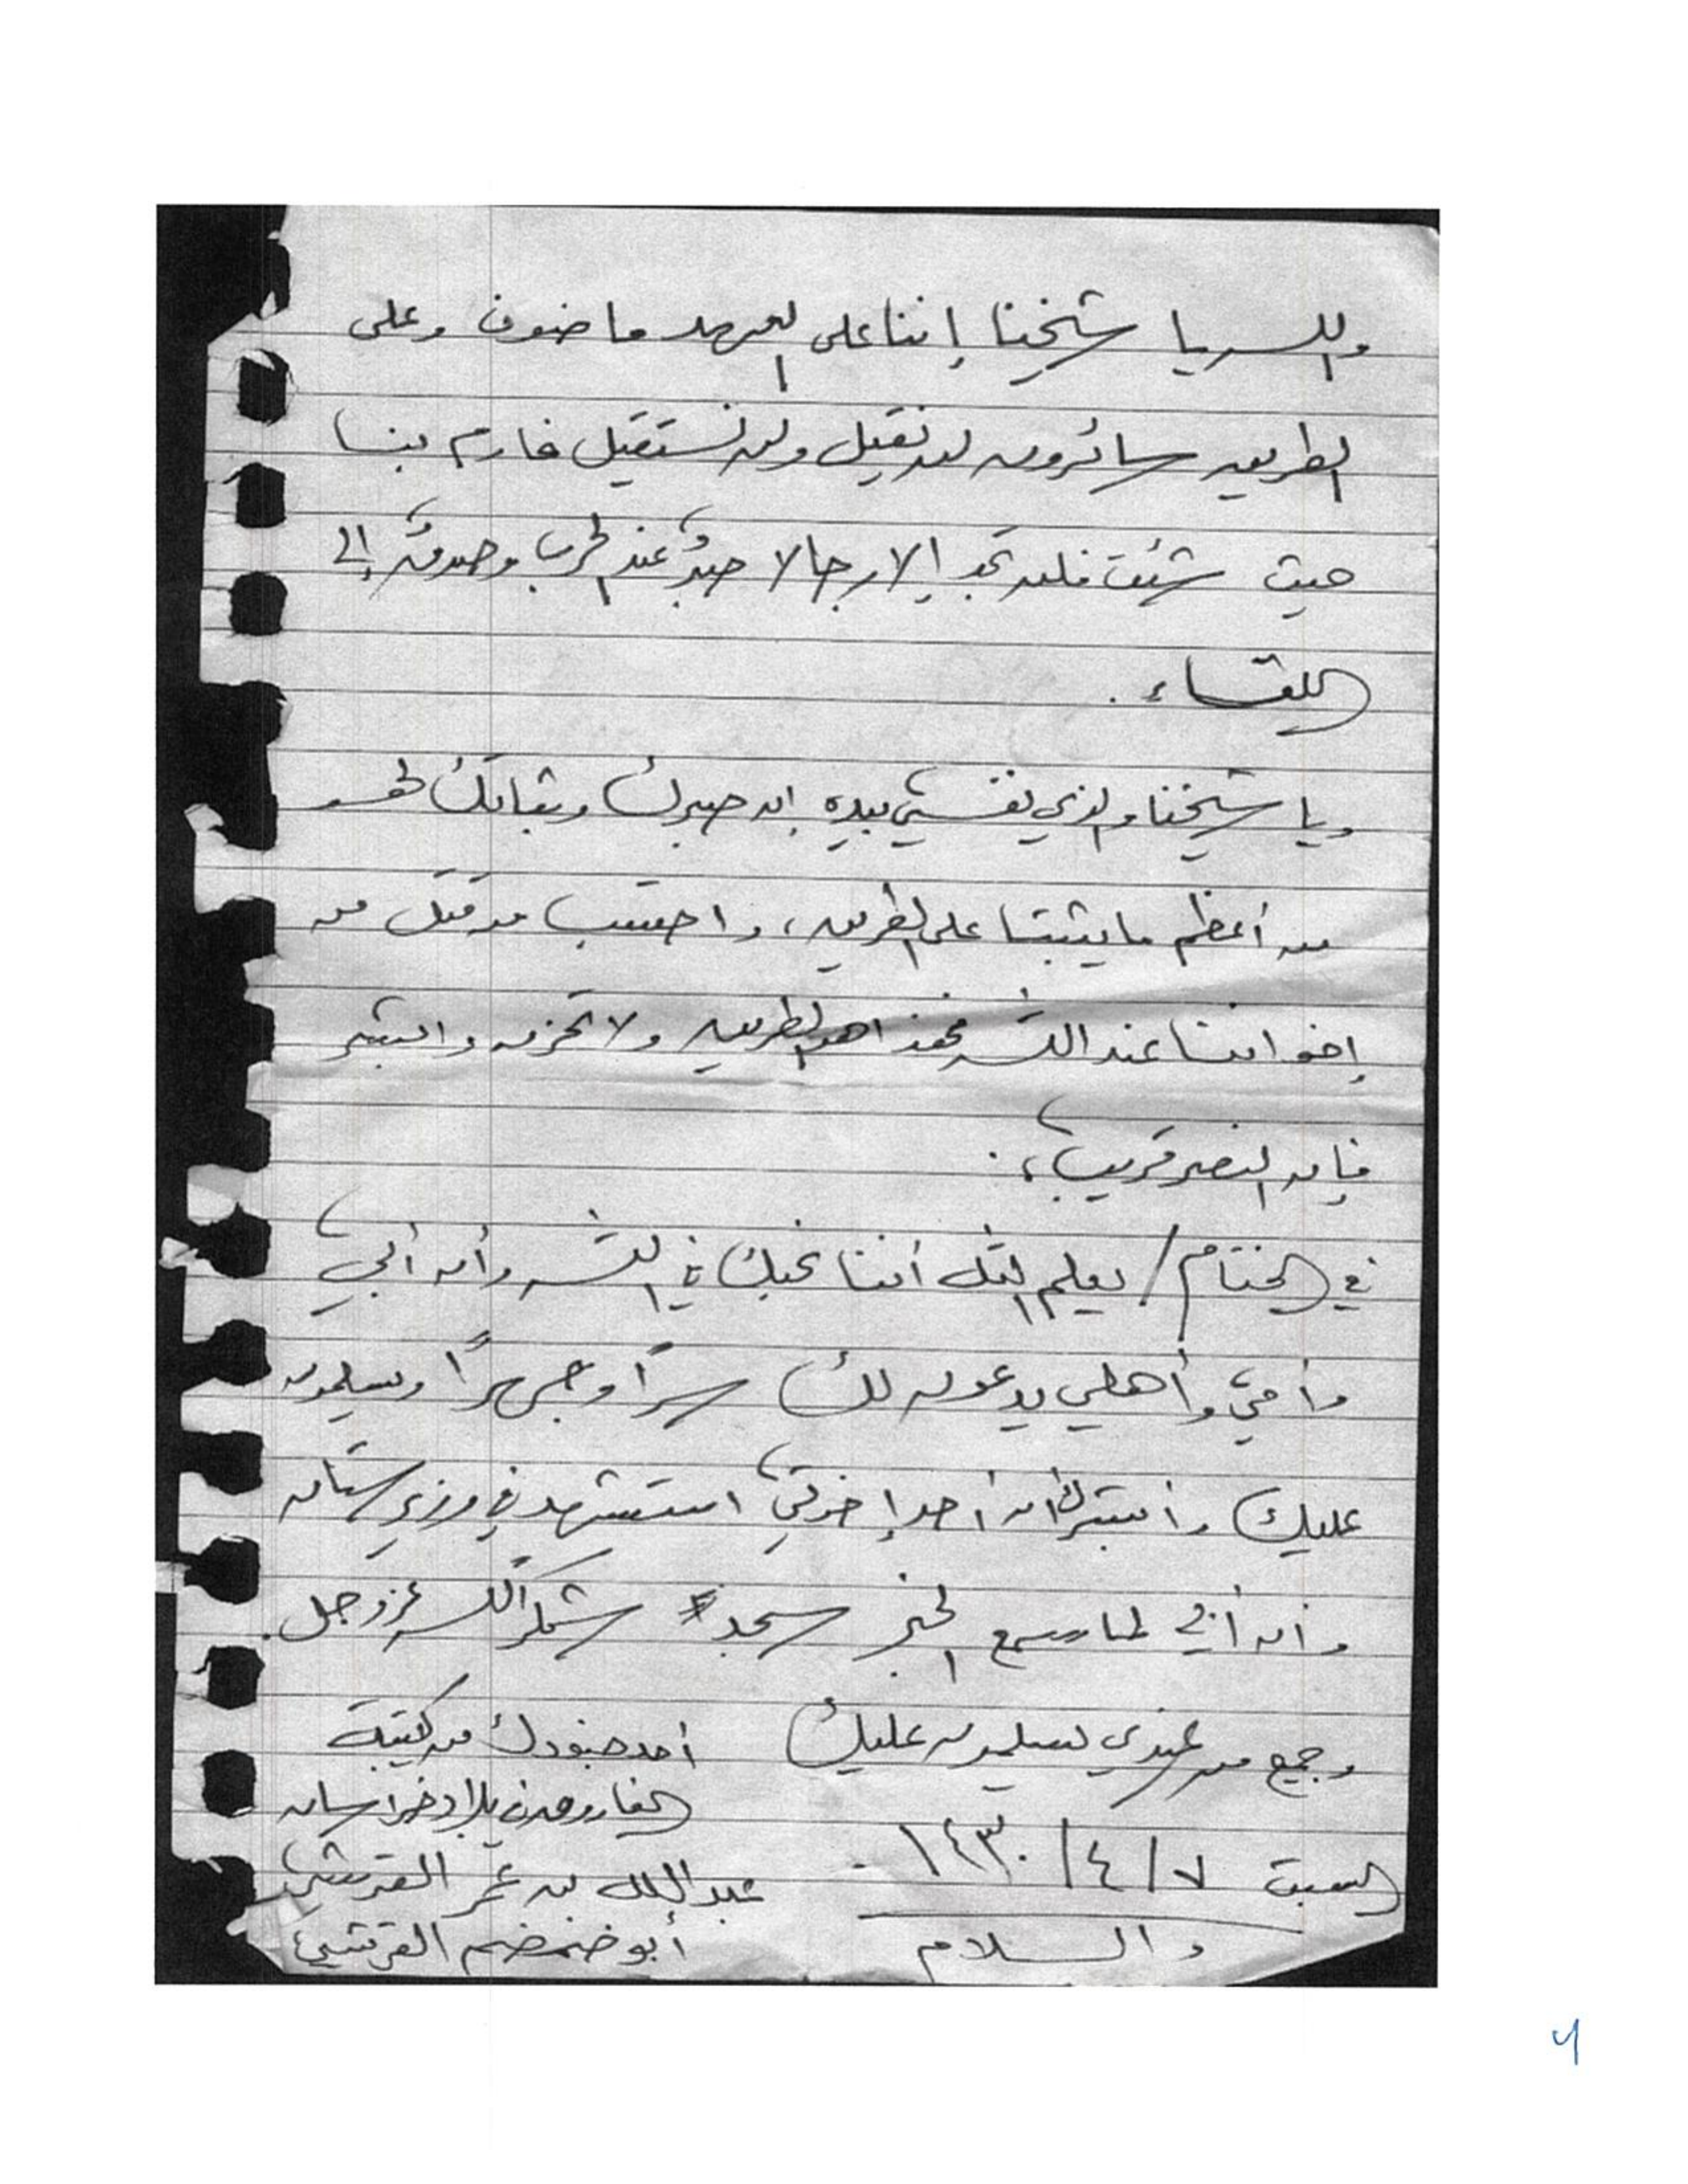 والله يا شيخنا إننا على العهد ماضون وعلى
الطريق سائرون لن نقيل ولن نستقيل فارم بنا
حيث شئت فلن تجد إلا رجالا صبرٌ عند الحرب وصدقٌ إلى
اللقاء .
ويا شيخنا والذي نفسي بيده إن صبرك وثباتك لهو
من أعظم ما يثبتنا على الطريق ، واحتسب من قتل من
إخواننا عند الله فهذا هو الطريق ولا تحزن وابشر
فإن النصر قريب ، .
في الختام / يعلم الله أننا نحبك في الله وأن أبي
وأمي وأهلي يدعون لك سرًا وجهرًا ويسلمون
عليك وأبشرك أن أحد إخوتي استشهد في وزيرستان
وأن أبي لما سمع الخبر سجد شكرًا لله عز وجل .
وجميع من عندي يسلمون عليك
أحد جنودك من كتيبة
الفاروق في بلاد خراسان
السبت ٧ / ٤ / ١٤٣٠
عبد الله بن عمر القرشي
والسلام
أبو ضمضم القرشي
4